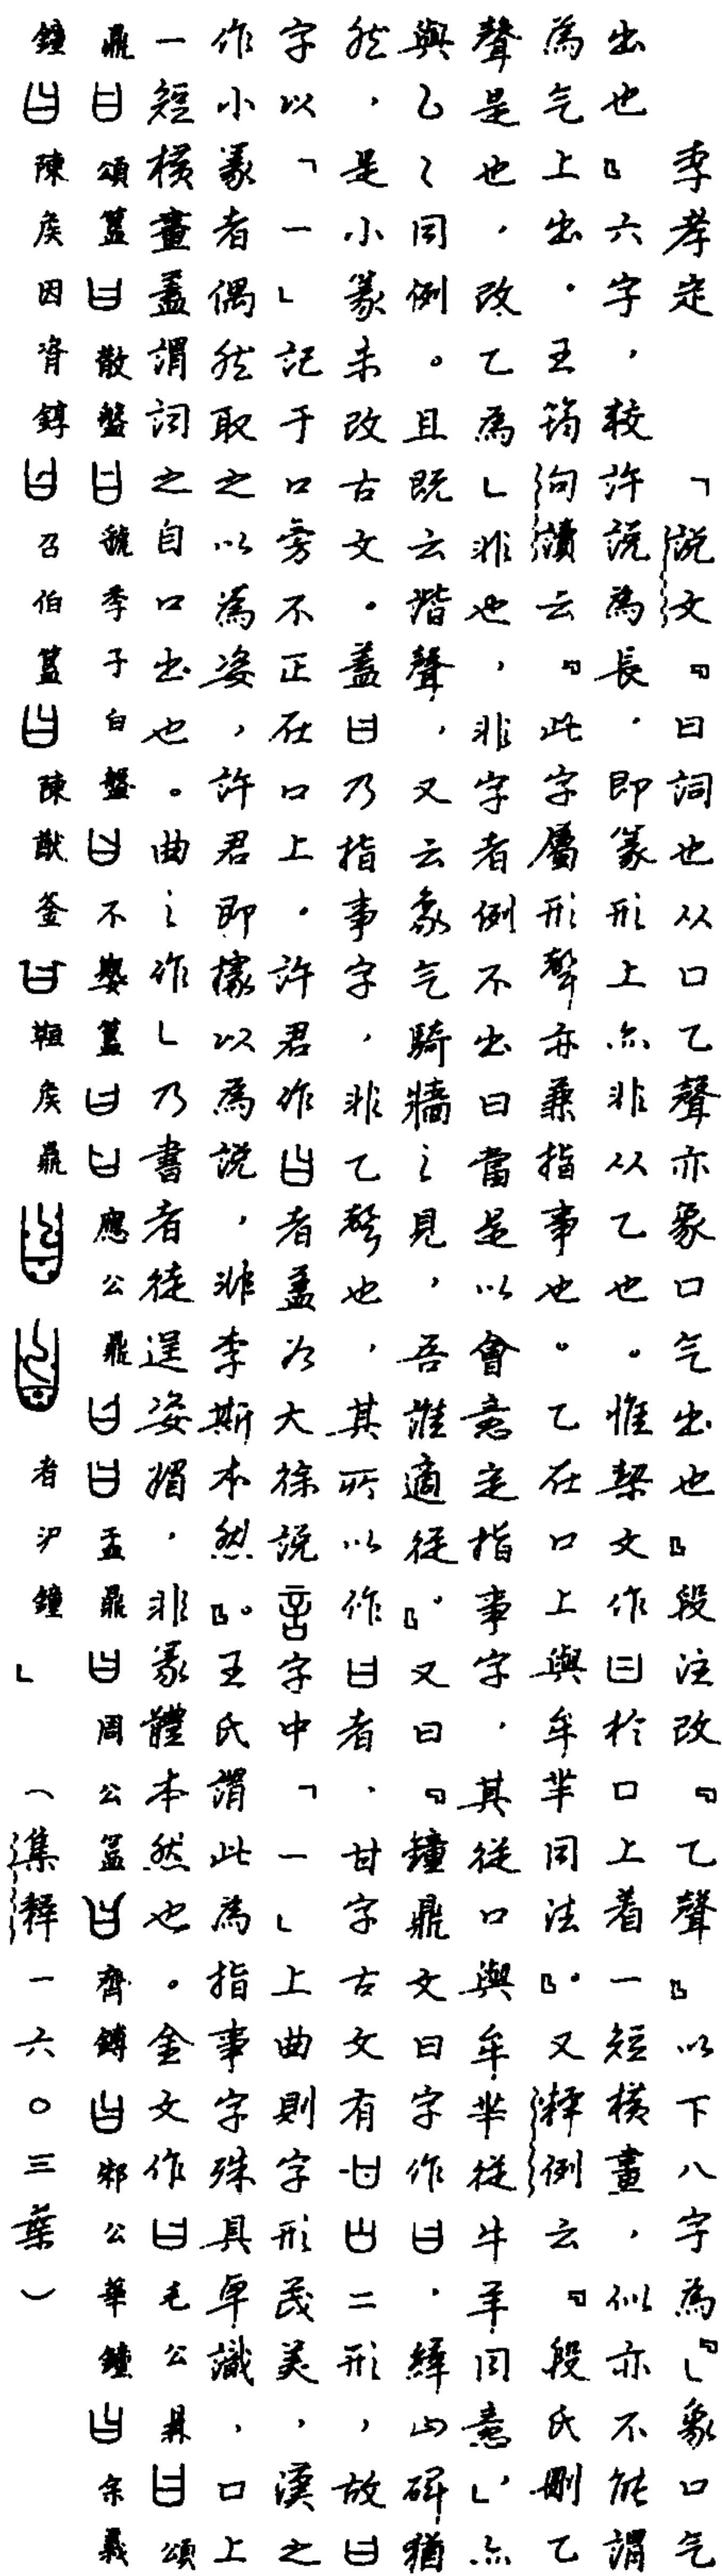 李孝定　「說文『曰詞也从口乙聲亦象口气出也』段注改『乙聲』以下八字為『乚象口气
出也』六字，較許說為長，即篆形上亦非从乙也。惟栔文作曰於口上着一短橫畫，似亦不能謂
為气上出。王筠句讀云『此字屬形聲亦兼指事也。乙在口上與牟羋同法』。又釋例云『段氏刪乙
聲是也，改乙為乚非也，非字者例不出曰當是以會意定指事字，其從口與牟羋從牛羊同意』，亦
與乙乙同例。且既云諧聲，又云象气騎牆之見，吾誰適從』。又曰『鐘鼎文曰字作曰，繹山碑猶
然，是小篆未改古文。蓋曰乃指事字，非乙聲也，其所以作曰者，甘字古文有二形，故曰
字以「一」記于口旁不正在口上。許君作者蓋沿大徐說字中「一」上曲則字形茂美，漢之
作小篆者偶然取之以為姿，許君即據以為說，非李斯本然』。王氏謂此為指事字殊具卓識，口上
一短橫畫蓋謂詞之自口出也。曲之作乚乃書者徒逞姿媚，非篆體本然也。金文作毛公鼎頌
鼎頌簋散盤虢季子白盤不𡢁簋應公鼎盂鼎周公簋齊鎛邾公華鐘余義
鐘陳侯因𬁼錞召伯簋陳猷釜𩏑侯鼎者沪鐘」（集釋一六〇三葉）